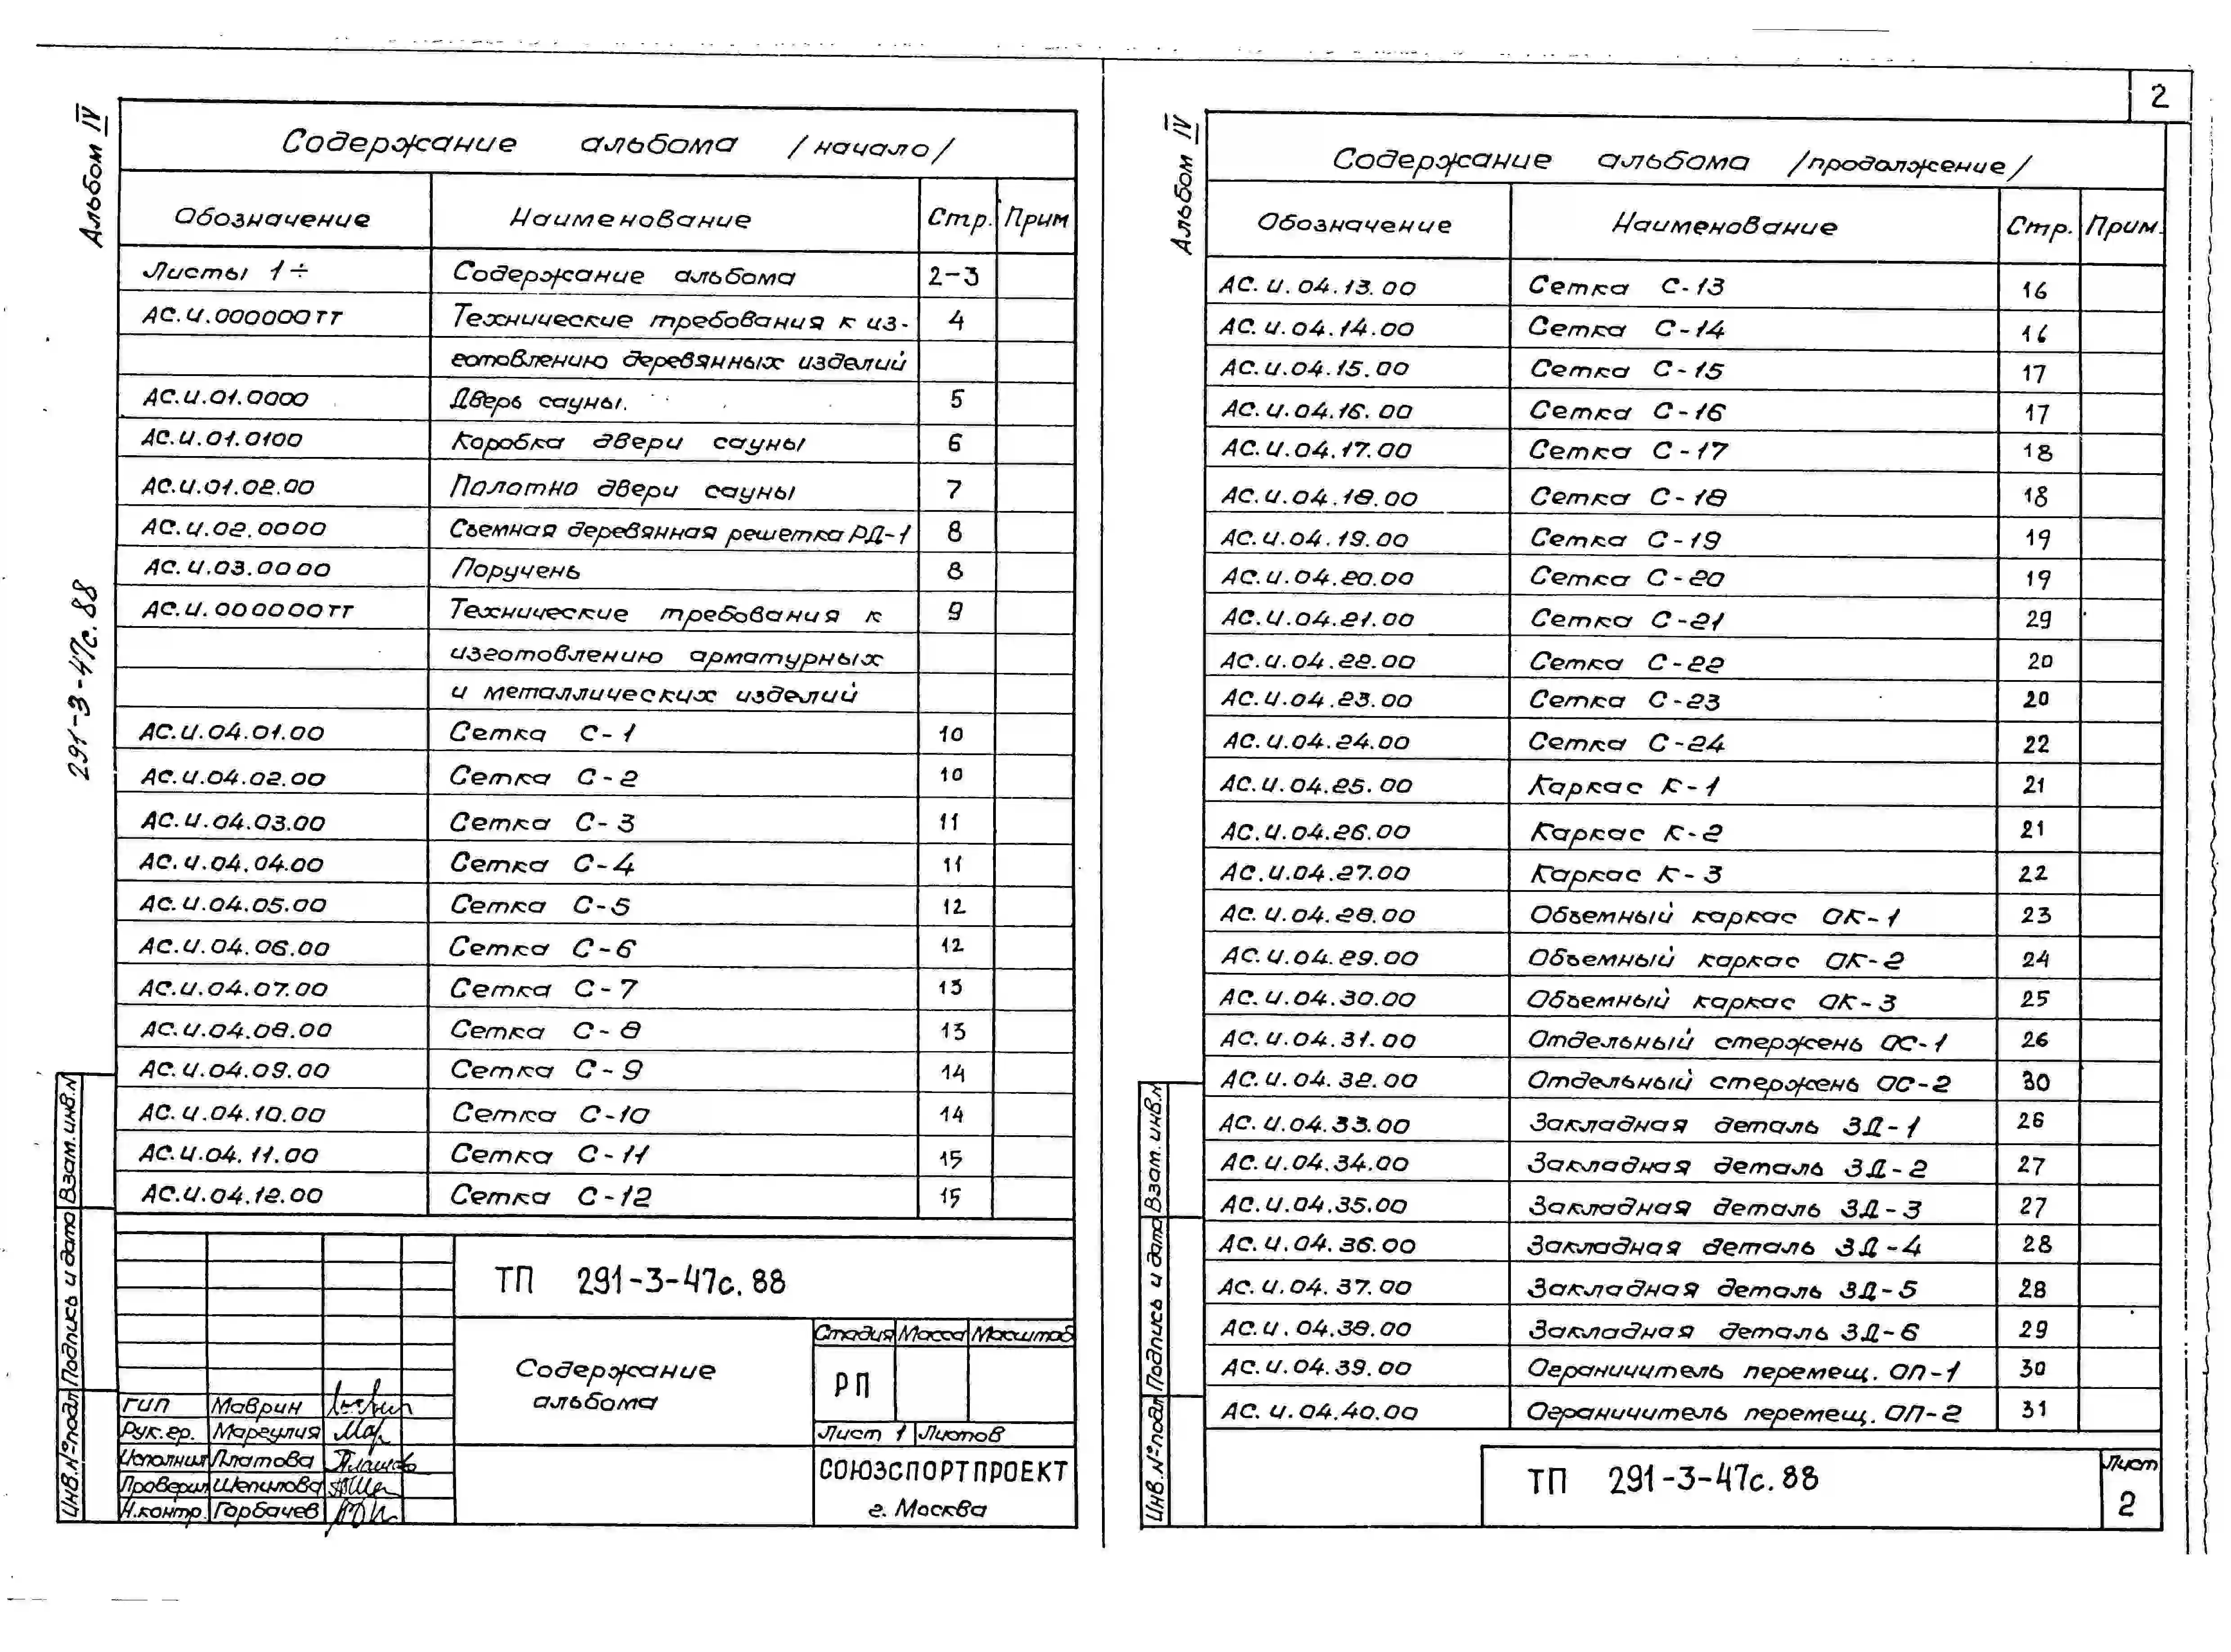 Альбом IV
291-3-47с.88
Содержание альбома /начало/
Обозначение Наименование Стр. Прим
Листы 1÷ Содержание альбома 2-3
АС.И.000000ТТ Технические требования к из- 4
готовлению деревянных изделий
АС.И.01.0000 Дверь сауны. 5
АС.И.01.0100 Коробка двери сауны 6
АС.И.01.02.00 Полотно двери сауны 7
АС.И.02.0000 Съемная деревянная решетка РД-1 8
АС.И.03.0000 Поручень 8
АС.И.000000ТТ Технические требования к 9
изготовлению арматурных
и металлических изделий
АС.И.04.01.00 Сетка С-1 10
АС.И.04.02.00 Сетка С-2 10
АС.И.04.03.00 Сетка С-3 11
АС.И.04.04.00 Сетка С-4 11
АС.И.04.05.00 Сетка С-5 12
АС.И.04.06.00 Сетка С-6 12
АС.И.04.07.00 Сетка С-7 13
АС.И.04.08.00 Сетка С-8 13
АС.И.04.09.00 Сетка С-9 14
АС.И.04.10.00 Сетка С-10 14
АС.И.04.11.00 Сетка С-11 15
АС.И.04.12.00 Сетка С-12 15
Взам.инв.N
Подпись и дата
Инв.№подл
ТП 291-3-47с.88
Содержание
альбома
Стадия Масса Масштаб
РП
Лист 1 Листов
СОЮЗСПОРТПРОЕКТ
г. Москва
ГИП Маврин
Рук.гр. Маргулия
Исполнил Платова
Проверил Шепилова
Н.контр. Горбачев
2
Альбом IV
Содержание альбома /продолжение/
Обозначение Наименование Стр. Прим.
АС.И.04.13.00 Сетка С-13 16
АС.И.04.14.00 Сетка С-14 16
АС.И.04.15.00 Сетка С-15 17
АС.И.04.16.00 Сетка С-16 17
АС.И.04.17.00 Сетка С-17 18
АС.И.04.18.00 Сетка С-18 18
АС.И.04.19.00 Сетка С-19 19
АС.И.04.20.00 Сетка С-20 19
АС.И.04.21.00 Сетка С-21 29
АС.И.04.22.00 Сетка С-22 20
АС.И.04.23.00 Сетка С-23 20
АС.И.04.24.00 Сетка С-24 22
АС.И.04.25.00 Каркас К-1 21
АС.И.04.26.00 Каркас К-2 21
АС.И.04.27.00 Каркас К-3 22
АС.И.04.28.00 Объемный каркас ОК-1 23
АС.И.04.29.00 Объемный каркас ОК-2 24
АС.И.04.30.00 Объемный каркас ОК-3 25
АС.И.04.31.00 Отдельный стержень ОС-1 26
АС.И.04.32.00 Отдельный стержень ОС-2 30
АС.И.04.33.00 Закладная деталь ЗД-1 26
АС.И.04.34.00 Закладная деталь ЗД-2 27
АС.И.04.35.00 Закладная деталь ЗД-3 27
АС.И.04.36.00 Закладная деталь ЗД-4 28
АС.И.04.37.00 Закладная деталь ЗД-5 28
АС.И.04.38.00 Закладная деталь ЗД-6 29
АС.И.04.39.00 Ограничитель перемещ. ОП-1 30
АС.И.04.40.00 Ограничитель перемещ. ОП-2 31
Взам.инв.N
Подпись и дата
Инв.№подл
ТП 291-3-47с.88
Лист
2